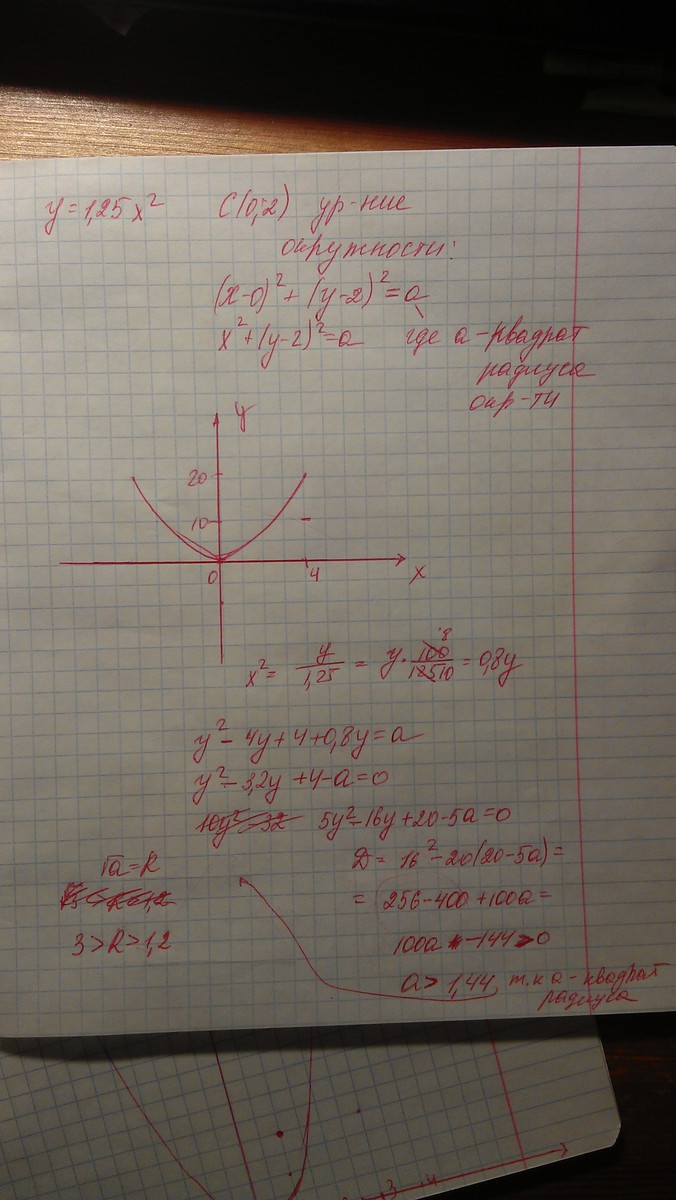 y = 1,25 x² C(0;2) ур-ние
окружности:
(x-0)² + (y-2)² = a
x² + (y-2)² = a где a - квадрат
радиуса
окр-ти
y
20
10
0 4 x
x² = y/1,25 = y · 100/125 10 8 = 0,8y
y² - 4y + 4 + 0,8y = a
y² - 3,2y + 4 - a = 0
10y² - 32 5y² - 16y + 20 - 5a = 0
√a = R D = 16² - 20(20-5a) =
= 256 - 400 + 100a =
3 > R > 1,2 100a - 144 > 0
a > 1,44, т.к a - квадрат
радиуса
3 4